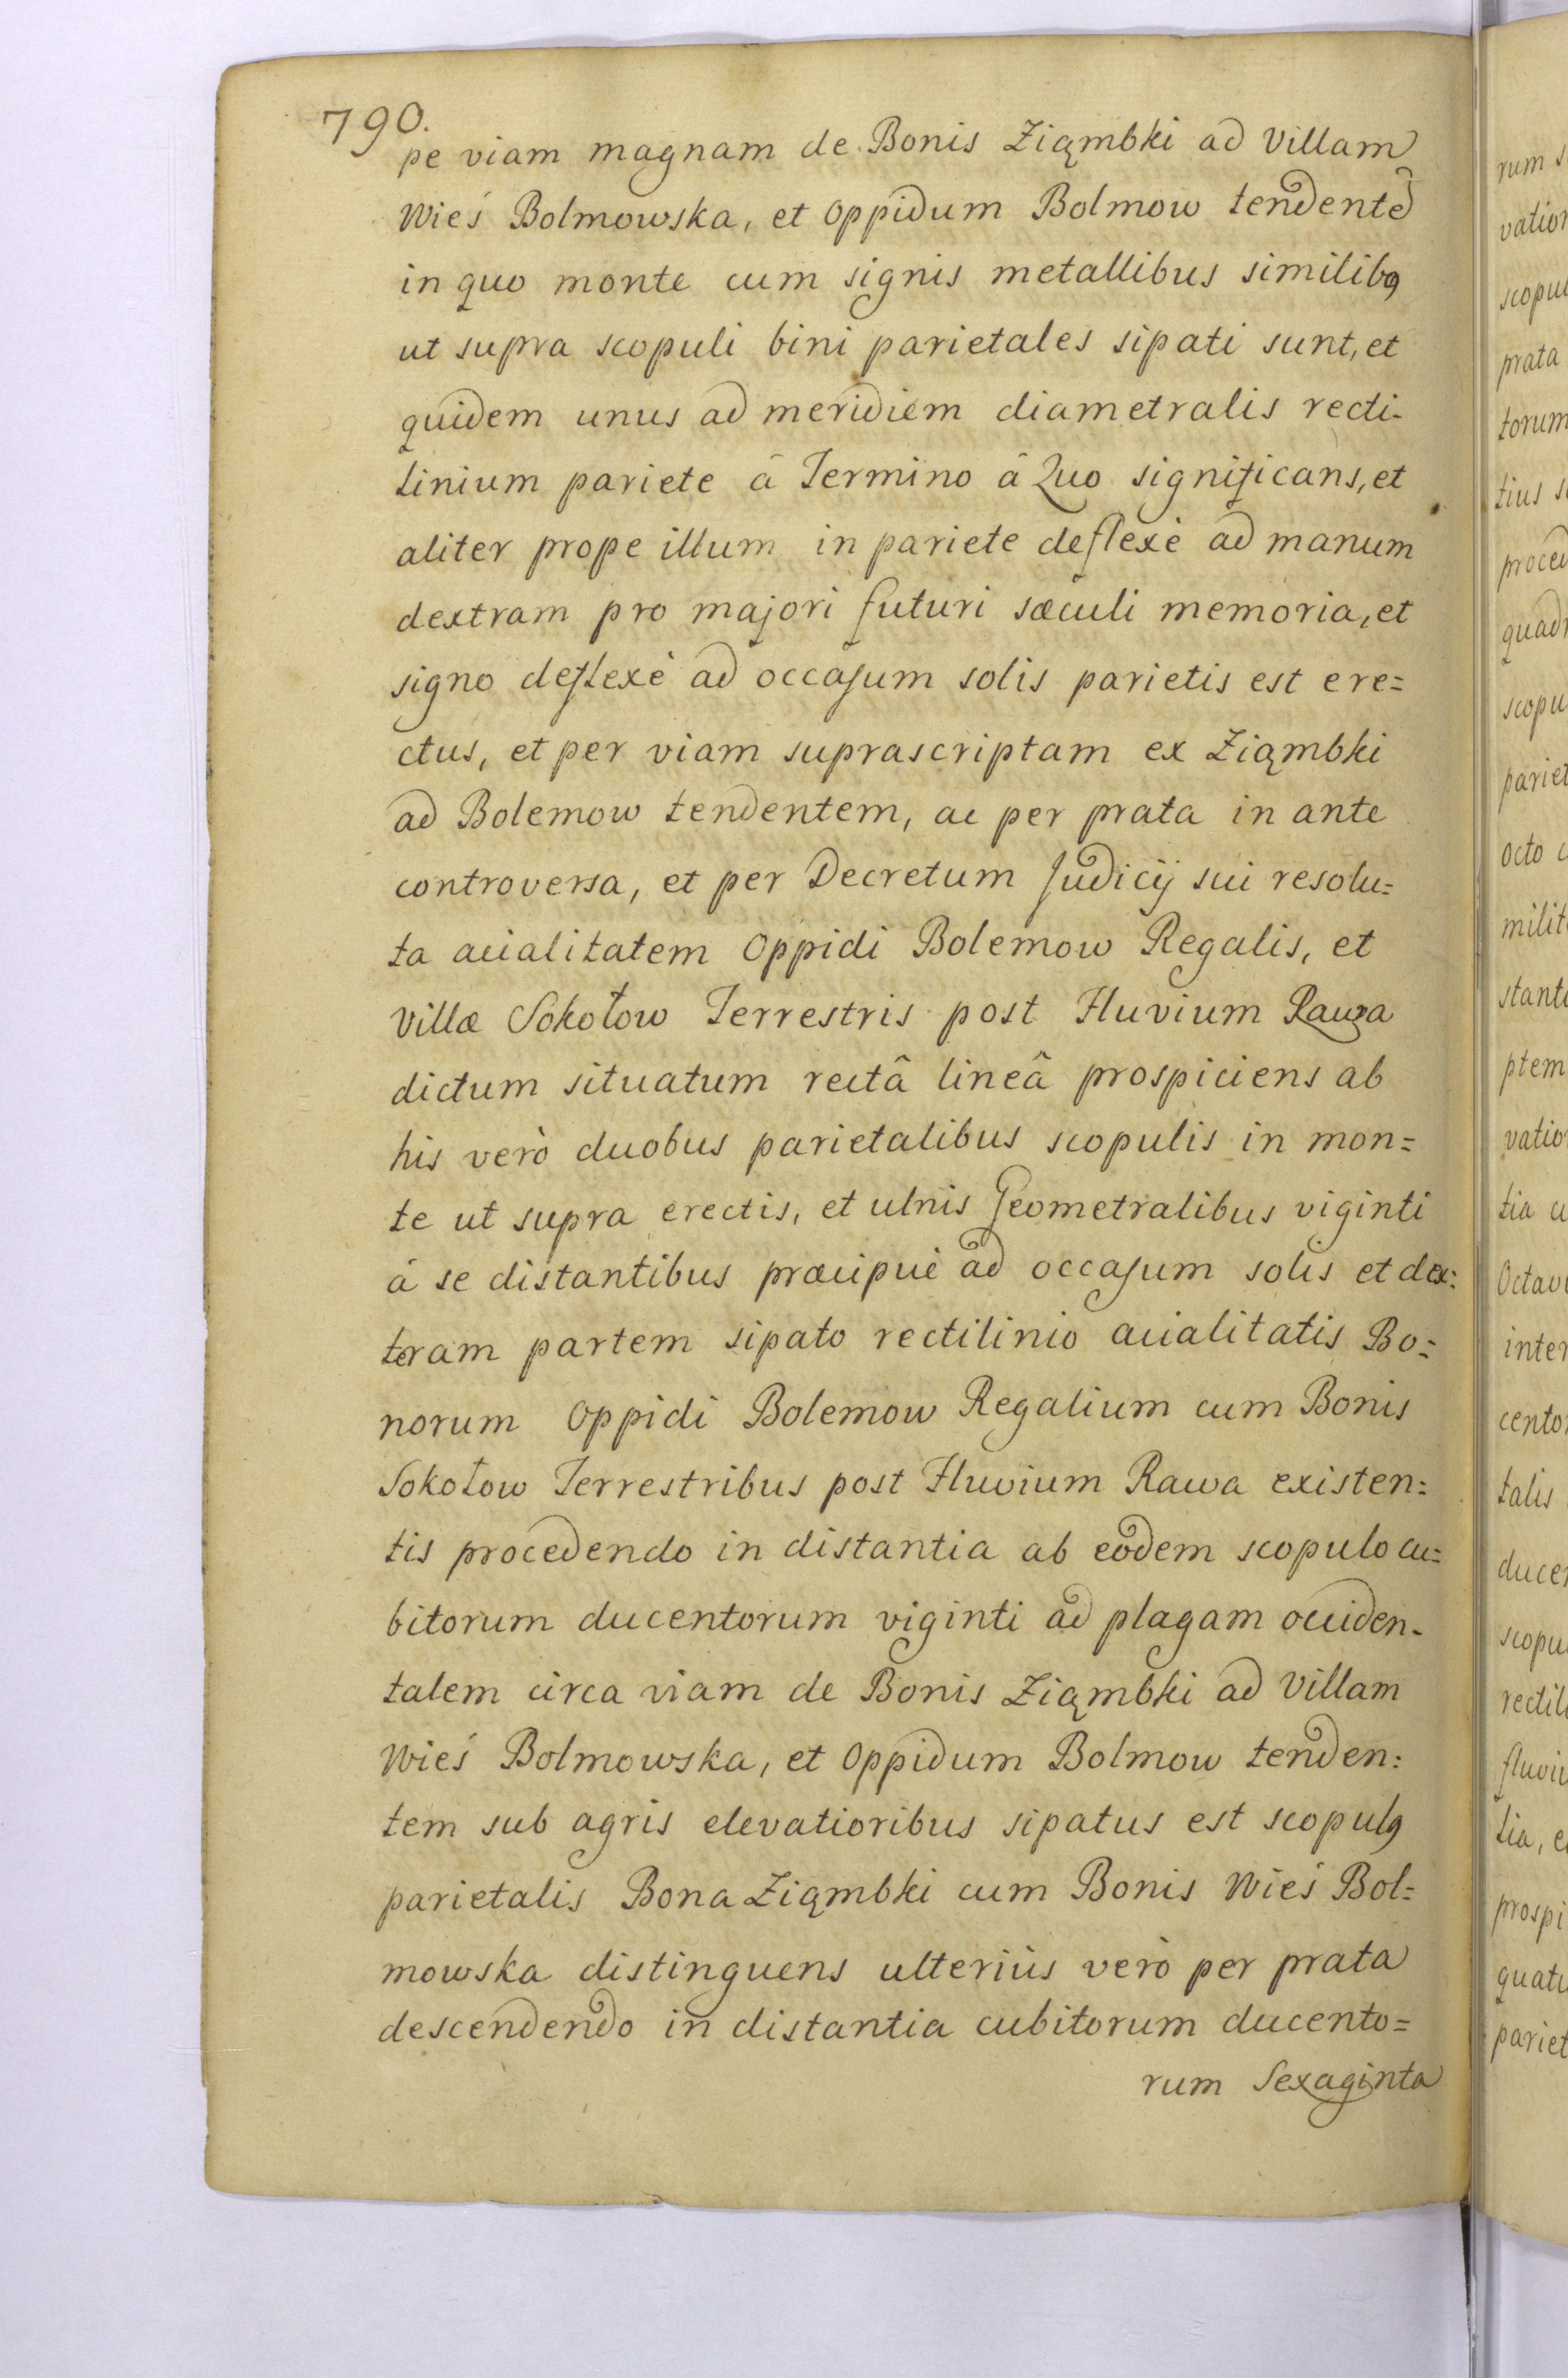 790.
pe viam magnam de Bonis Ziąmbki ad Villam
Wieś Bolmowska, et Oppidum Bolmow tendentẽ
in quo monte cum signis metallibus similibꝯ
ut supra scopuli bini parietales sipati sunt, et
quidem unus ad meridiem diametralis recti-
linium pariete â Termino â Quo significans, et
aliter prope illum in pariete deflexè ad manum
dextram pro majori futuri sæculi memoria, et
signo deflexè ad occasum solis parietis est ere=
ctus, et per viam suprascriptam ex Ziąmbki
ad Bolemow tendentem, ac per prata in ante
controversa, et per Decretum Judicij sui resolu=
ta acialitatem Oppidi Bolemow Regalis, et
Villæ Sokołow Terrestris post Fluvium Rawa
dictum situatum rectâ lineâ prospiciens ab
his verò duobus parietalibus scopulis in mon=
te ut supra erectis, et ulnis Geometralibus viginti
á se distantibus præcipuè ad occasum solis et dex=
teram partem sipato rectilinio acialitatis Bo=
norum Oppidi Bolemow Regalium cum Bonis
Sokołow Terrestribus post Fluvium Rawa existen=
tis procedendo in distantia ab eodem scopulo cu=
bitorum ducentorum viginti ad plagam occiden-
talem circa viam de Bonis Ziąmbki ad Villam
Wieś Bolmowska, et Oppidum Bolmow tenden=
tem sub agris elevatioribus sipatus est scopulꝯ
parietalis Bona Ziąmbki cum Bonis Wieś Bol=
mowska distinguens ulteriùs verò per prata
descendendo in distantia cubitorum ducento=
rum Sexaginta
rum
vation
scopul
prata
torum
tius
proced
quadr
scopu
pariet
octo
milit
stant
ptem
vatio
tia
Octav
inter
centor
talis
ducen
scopu
rectil
fluvii
tia,
prospi
quatu
pariet